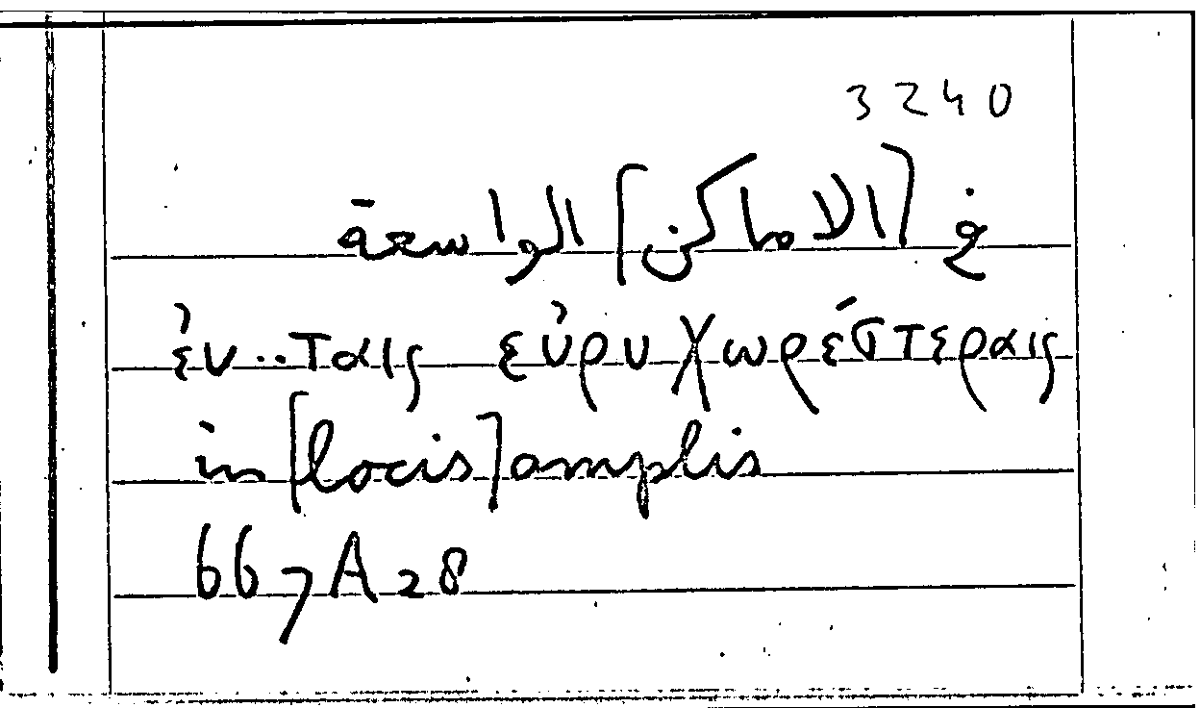 3240
في [الاماكن] الواسعة
ἐν..ταις εὐρυχωρέστεραις
in [locis] amplis
667A28